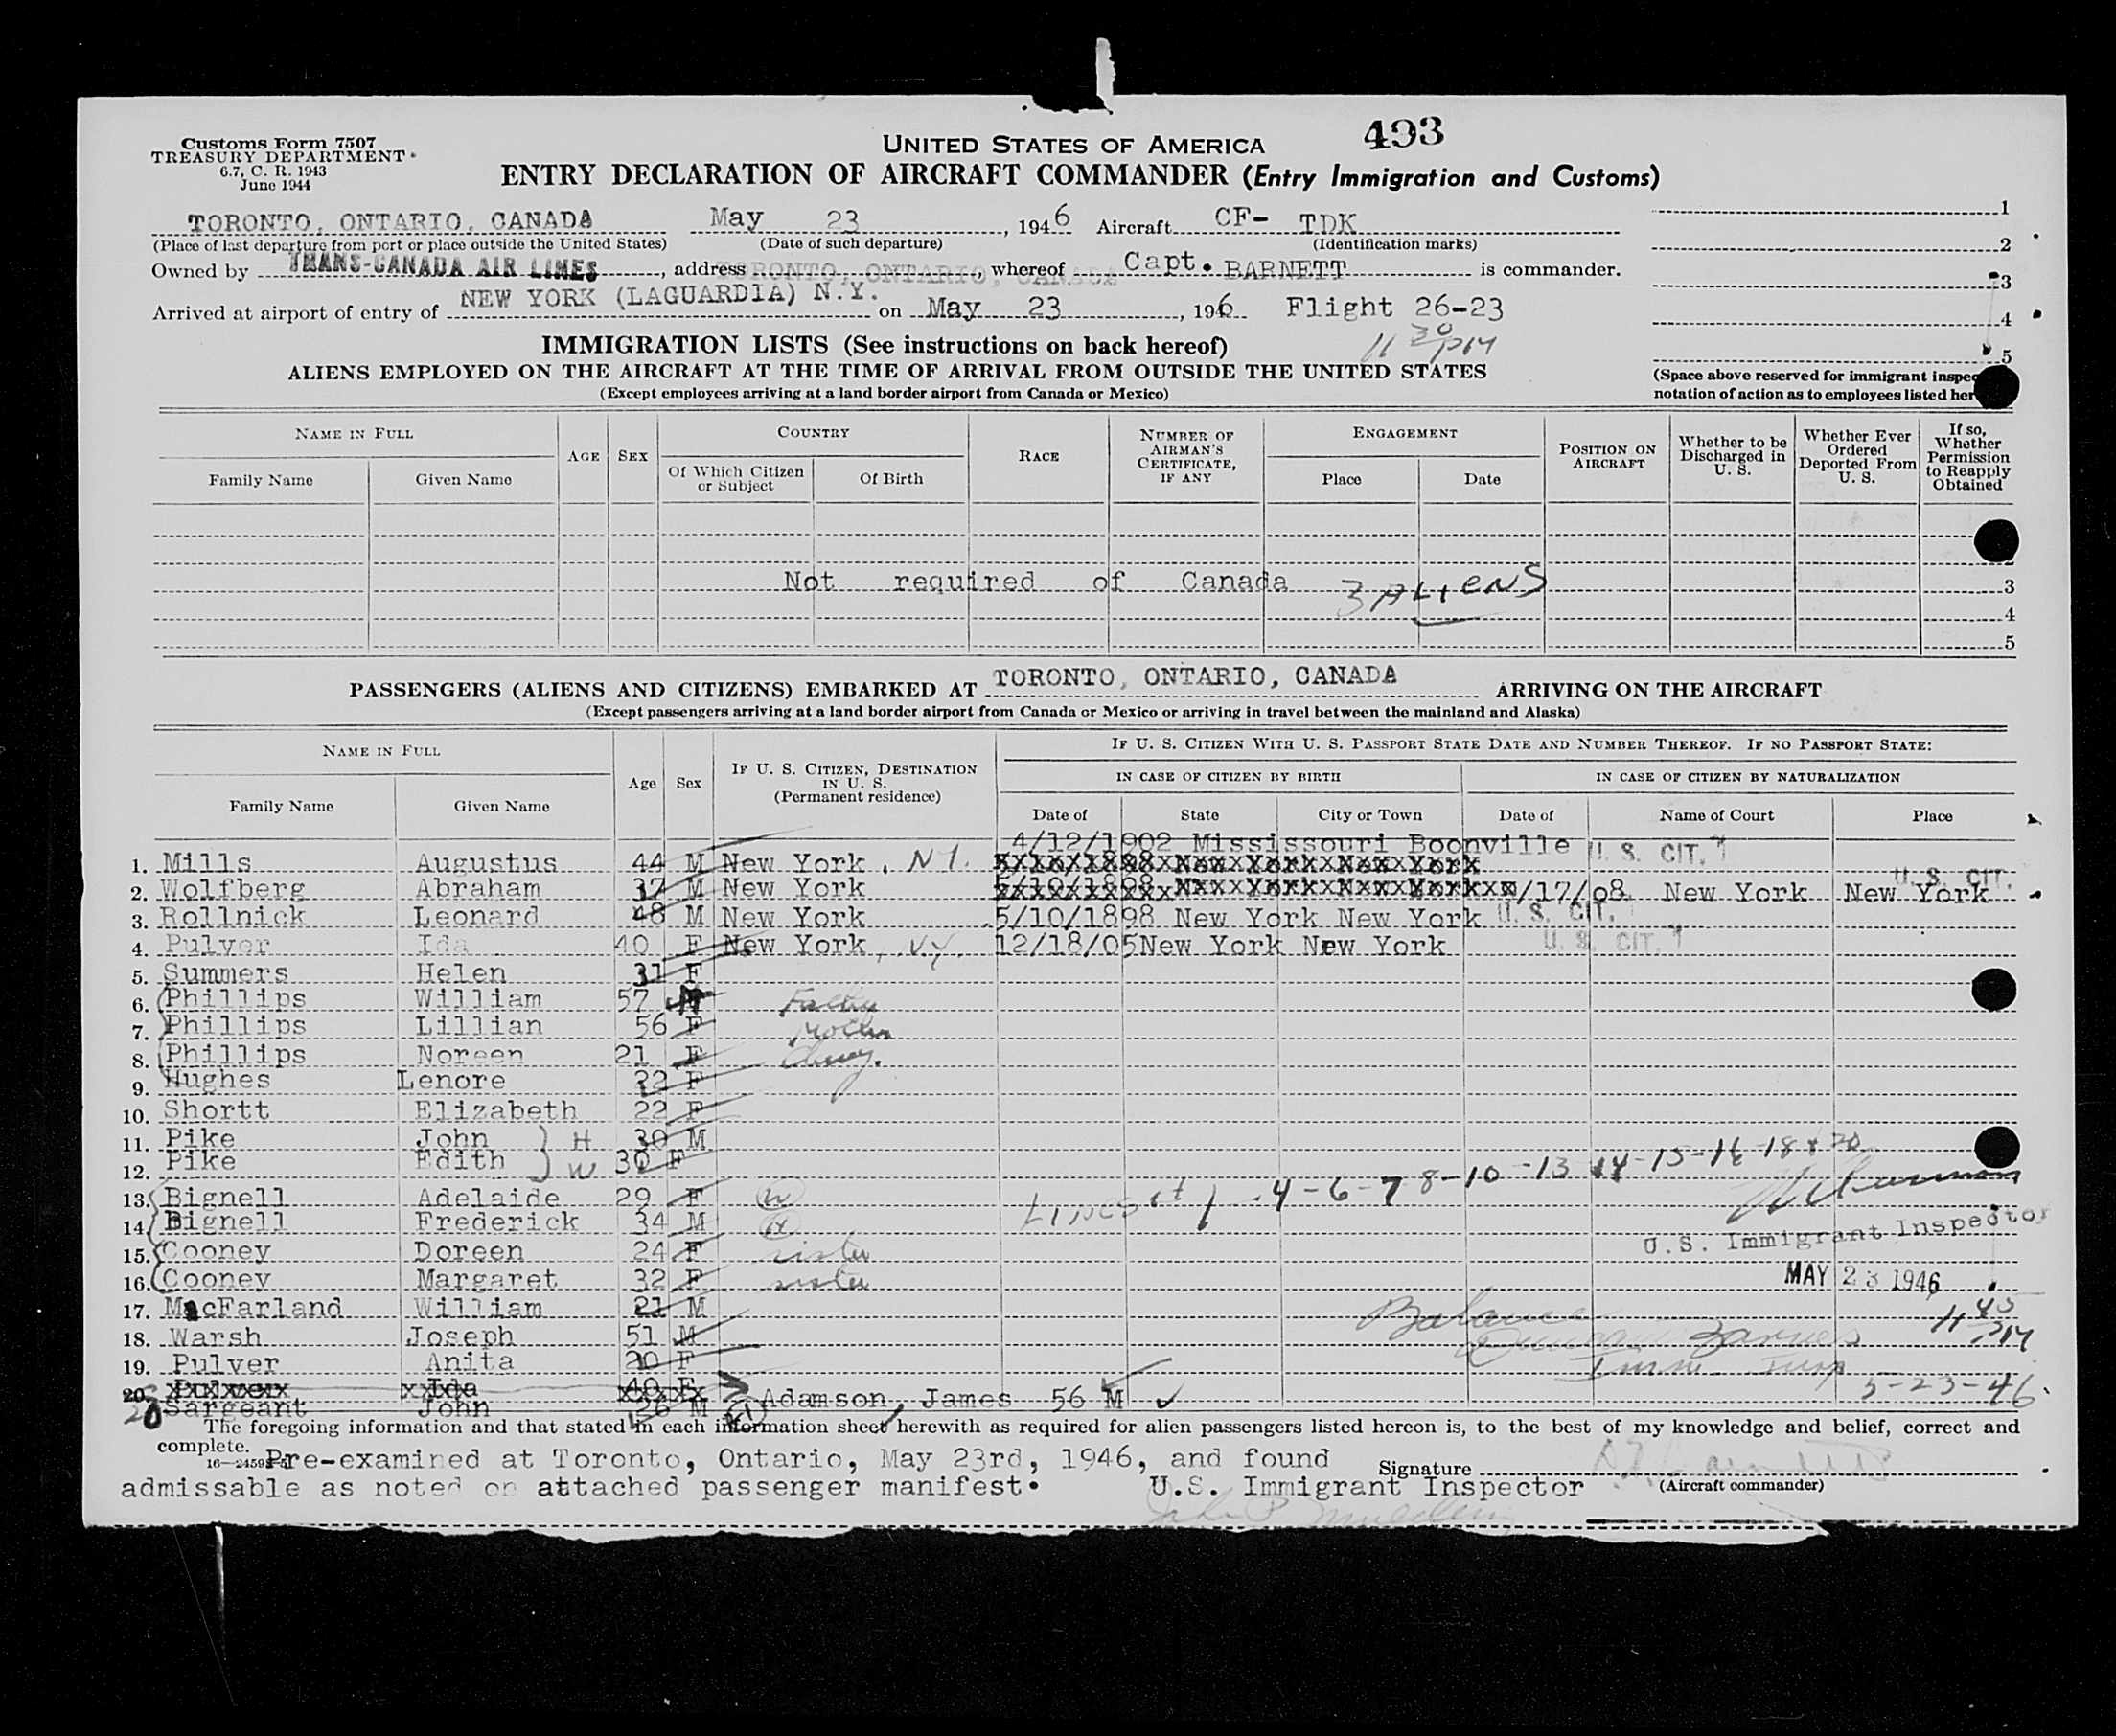 493
Customs Form 7507
TREASURY DEPARTMENT
6.7, C. R. 1943
June 1944
UNITED STATES OF AMERICA
ENTRY DECLARATION OF AIRCRAFT COMMANDER (Entry Immigration and Customs)
TORONTO, ONTARIO, CANADA May 23, 1946 Aircraft CF- TDK
(Place of last departure from port or place outside the United States) (Date of such departure) (Identification marks)
Owned by TRANS-CANADA AIR LINES, address TORONTO, ONTARIO, CANADA whereof Capt. BARNETT is commander.
Arrived at airport of entry of NEW YORK (LAGUARDIA) N.Y. on May 23, 1946 Flight 26-23
11 30 PM
1
2
3
4
5
(Space above reserved for immigrant inspec
notation of action as to employees listed her
IMMIGRATION LISTS (See instructions on back hereof)
ALIENS EMPLOYED ON THE AIRCRAFT AT THE TIME OF ARRIVAL FROM OUTSIDE THE UNITED STATES
(Except employees arriving at a land border airport from Canada or Mexico)
NAME IN FULL AGE SEX COUNTRY RACE NUMBER OF AIRMAN'S CERTIFICATE, IF ANY ENGAGEMENT POSITION ON AIRCRAFT Whether to be Discharged in U. S. Whether Ever Ordered Deported From U. S. If so, Whether Permission to Reapply Obtained
Family Name Given Name Of Which Citizen or Subject Of Birth Place Date
Not required of Canada 3 ALIENS 3
4
5
PASSENGERS (ALIENS AND CITIZENS) EMBARKED AT TORONTO, ONTARIO, CANADA ARRIVING ON THE AIRCRAFT
(Except passengers arriving at a land border airport from Canada or Mexico or arriving in travel between the mainland and Alaska)
NAME IN FULL Age Sex IF U. S. CITIZEN, DESTINATION IN U. S. (Permanent residence) IF U. S. CITIZEN WITH U. S. PASSPORT STATE DATE AND NUMBER THEREOF. IF NO PASSPORT STATE:
IN CASE OF CITIZEN BY BIRTH IN CASE OF CITIZEN BY NATURALIZATION
Family Name Given Name Date of State City or Town Date of Name of Court Place
4/12/1902 Mississouri Boonville
1. Mills Augustus 44 M New York, N.Y. U. S. CIT.
2. Wolfberg Abraham 37 M New York /17/08 New York New York U. S. CIT.
3. Rollnick Leonard 48 M New York 5/10/1898 New York New York U. S. CIT.
4. Pulver Ida 40 F New York, N.Y. 12/18/05 New York New York U. S. CIT.
5. Summers Helen 31 F
6. Phillips William 57 M Father
7. Phillips Lillian 56 F Mother
8. Phillips Noreen 21 F
9. Hughes Lenore 22 F
10. Shortt Elizabeth 22 F
11. Pike John H 30 M
12. Pike Edith W 30 F
13. Bignell Adelaide 29 F W
14. Bignell Frederick 34 M H
Lines 1-4-6-7 8-10-13 14-15-16-18 & 20
15. Cooney Doreen 24 F sister
U.S. Immigrant Inspector
16. Cooney Margaret 32 F sister
MAY 23 1946
17. MacFarland William 21 M Balance 11 45 PM
18. Warsh Joseph 51 M
19. Pulver Anita 20 F
20. Pulver Ida 40 F
5-23-46
Adamson, James 56 M
20 Sargeant John 26 M
The foregoing information and that stated in each information sheet herewith as required for alien passengers listed hereon is, to the best of my knowledge and belief, correct and
complete.
Pre-examined at Toronto, Ontario, May 23rd, 1946, and found
Signature
admissable as noted on attached passenger manifest. U.S. Immigrant Inspector (Aircraft commander)